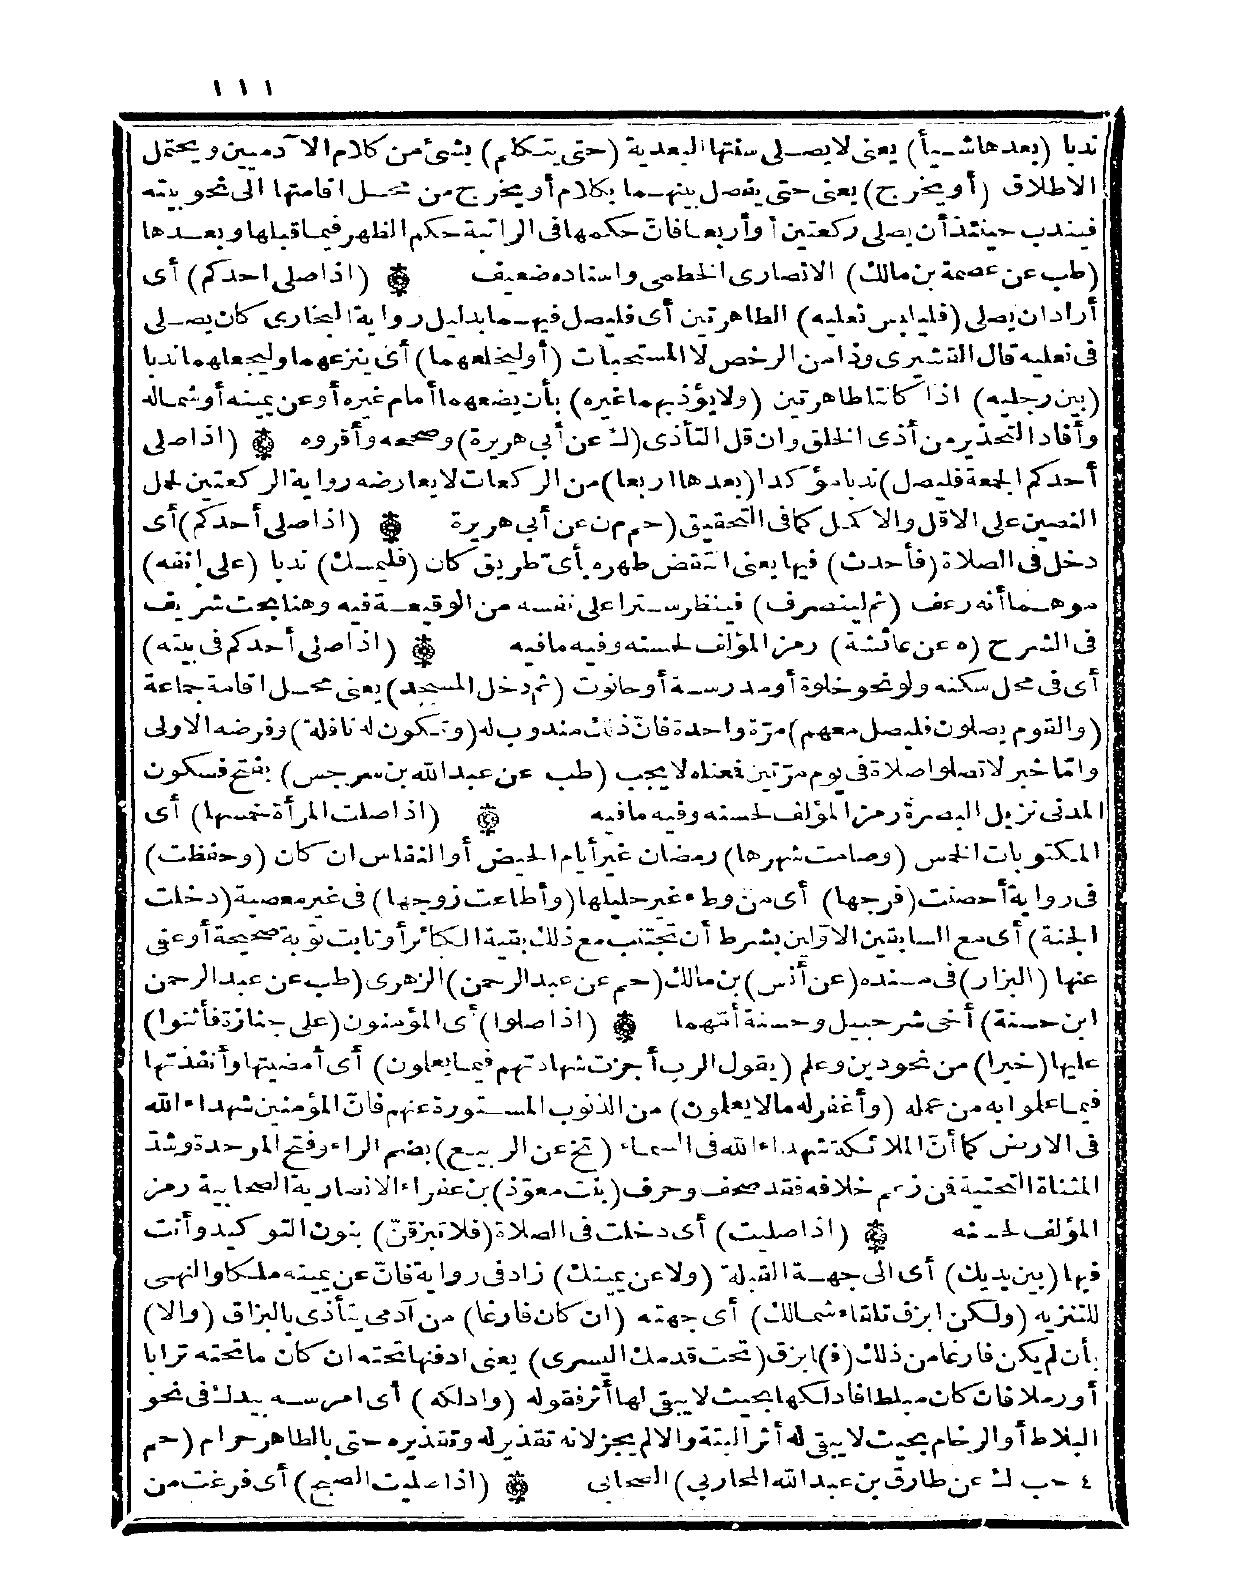 ١١١
ندبا (بعدها شيأ) يعنى لا يصلى سنتها البعدية (حتى يتكلم) بشئ من كلام الآدميين ويحتمل
الاطلاق (أو يخرج) يعنى حتى يفصل بينهما بكلام أو يخرج من محل اقامتها الى نحو بيته
فيندب حينئذ أن يصلى ركعتين أو أربعا فان حكمها فى الراتبة حكم الظهر فيما قبلها وبعدها
(طب عن عصمة بن مالك) الانصارى الخطمى واسناده ضعيف ۞ (اذا صلى احدكم) أى
أراد ان يصلى (فليلبس نعليه) الطاهرتين أى فليصل فيهما بدليل رواية البخارى كان يصلى
فى نعليه قال القشيرى وذا من الرخص لا المستحبات (أو ليخلعهما) أى ينزعهما وليجعلهما ندبا
(بين رجليه) اذا كانتا طاهرتين (ولا يؤذ بهما غيره) بأن يضعهما أمام غيره أو عن يمينه أو شماله
وأفاد التحذير من أذى الخلق وان قل التأذى (ك عن أبى هريرة) وصححه وأقروه ۞ (اذا صلى
أحدكم الجمعة فليصل) ندبا مؤكدا (بعدها اربعا) من الركعات لا يعارضه رواية الركعتين لحمل
النصين على الاقل والاكمل كما فى التحقيق (حم م ن عن أبى هريرة ۞ (اذا صلى أحدكم) أى
دخل فى الصلاة (فأحدث) فيها يعنى انتقض طهره بأى طريق كان (فليمسك) ندبا (على انفه)
موهما أنه رعف (ثم لينصرف) فينظر سترا على نفسه من الوقيعة فيه وهنا بحث شريف
فى الشرح (ه عن عائشة) رمز المؤلف لحسنه وفيه ما فيه ۞ (اذا صلى أحدكم فى بيته)
أى فى محل سكنه ولو نحو خلوة أو مدرسة أو حانوت (ثم دخل المسجد) يعنى محل اقامة جماعة
(والقوم يصلون فليصل معهم) مرّة واحدة فانّ ذلك مندوب له (وتكون له نافلة) وفرضه الاولى
وامّا خبر لا تصلوا صلاة فى يوم مرّتين فمعناه لا يجب (طب عن عبد الله بن سرجس) بفتح فسكون
المدنى نزيل البصرة رمز المؤلف لحسنه وفيه ما فيه ۞ (اذا صلت المرأة خمسها) أى
المكتوبات الخمس (وصامت شهرها) رمضان غير أيام الحيض أو النفاس ان كان (وحفظت)
فى رواية أحصنت (فرجها) أى من وطء غير حليلها (وأطاعت زوجها) فى غير معصية (دخلت
الجنة) أى مع السابقين الاوّلين بشرط أن تجتنب مع ذلك بقية الكبائر أو تابت توبة صحيحة أو عفى
عنها (البزار) فى مسنده (عن أنس) بن مالك (حم عن عبد الرحمن) الزهرى (طب عن عبد الرحمن
ابن حسنة) أخى شرحبيل وحسنة أمّهما ۞ (اذا صلوا) أى المؤمنون (على جنازة فأثنوا)
عليها (خيرا) من نحو دين وعلم (يقول الرب أجزت شهادتهم فيما يعلمون) أى أمضيتها وأنفذتها
فيما علموا به من عمله (وأغفر له ما لا يعلمون) من الذنوب المستورة عنهم فانّ المؤمنين شهداء الله
فى الارض كما أنّ الملائكة شهداء الله فى السماء (تخ عن الربيع) بضم الراء وفتح الموحدة وشد
المثناة التحتية فمن زعم خلافه فقد صحف وحرف (بنت معوّذ) بن عفراء الانصارية الصحابية رمز
المؤلف لحسنه ۞ (اذا صليت) أى دخلت فى الصلاة (فلا تبزقنّ) بنون التوكيد وأنت
فيها (بين يديك) أى الى جهة القبلة (ولا عن يمينك) زاد فى رواية فانّ عن يمينه ملكا والنهى
للتنزيه (ولكن ابزق تلقاء شمالك) أى جهته (ان كان فارغا) من آدمى يتأذى بالبزاق (والا)
بأن لم يكن فارغا من ذلك (ف) ابزق (تحت قدمك اليسرى) يعنى ادفنها تحته ان كان ما تحته ترابا
أو رملا فان كان مبلطا فادلكها بحيث لا يبقى لها أثر فقوله (وادلكه) أى امرسه بيدك فى نحو
البلاط أو الرخام بحيث لا يبقى له أثر البتة والا لم يجز لانه تقذير له وتقذيره حتى بالطاهر حرام (حم
٤ حب ك عن طارق بن عبد الله المحاربى) الصحابى ۞ (اذا صليت الصبح) أى فرغت من